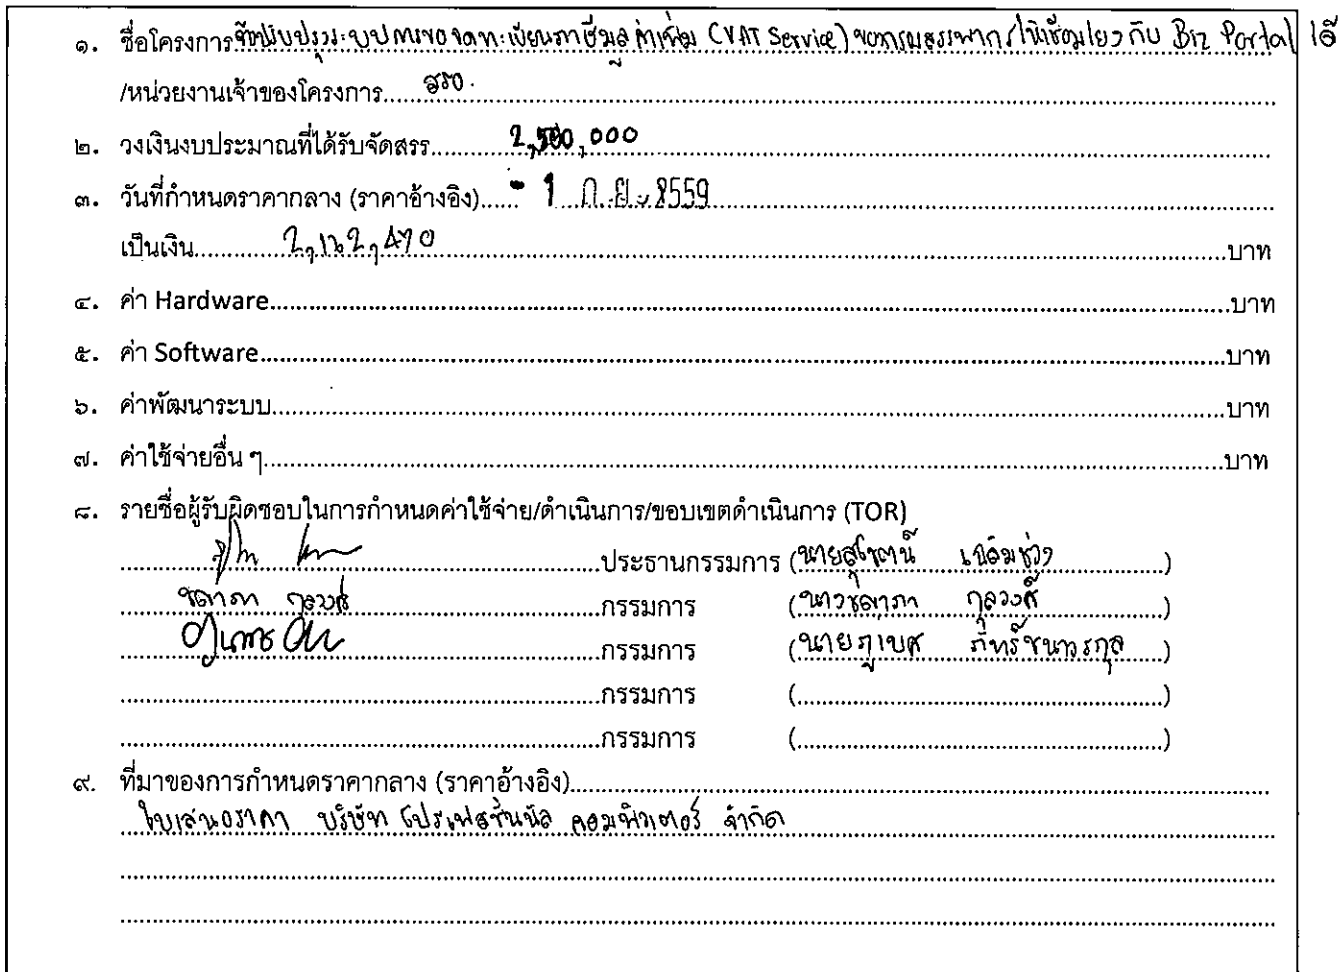 ๑. ชื่อโครงการ จ้างปรับปรุงระบบการขอจดทะเบียนภาษีมูลค่าเพิ่ม (VAT Service) ของกรมสรรพากร ให้เชื่อมโยงกับ Biz Portal ได้
/หน่วยงานเจ้าของโครงการ..... สรอ.
๒. วงเงินงบประมาณที่ได้รับจัดสรร..... 2,500,000
๓. วันที่กำหนดราคากลาง (ราคาอ้างอิง)..... - 1 ก.ย. 2559
เป็นเงิน..... 2,132,470 .....บาท
๔. ค่า Hardware.....บาท
๕. ค่า Software.....บาท
๖. ค่าพัฒนาระบบ.....บาท
๗. ค่าใช้จ่ายอื่น ๆ.....บาท
๘. รายชื่อผู้รับผิดชอบในการกำหนดค่าใช้จ่าย/ดำเนินการ/ขอบเขตดำเนินการ (TOR)
.....ประธานกรรมการ (นายสุโชตน์ เฉลิมช่วง)
ชลาภา กุลวงศ์ .....กรรมการ (นางชลาภา กุลวงศ์)
.....กรรมการ (นายภูเบศ ภัทรัชนาวรกุล)
.....กรรมการ (.....)
.....กรรมการ (.....)
๙. ที่มาของการกำหนดราคากลาง (ราคาอ้างอิง).....
ใบเสนอราคา บริษัท โปรเฟสชั่นนัล คอมพิวเตอร์ จำกัด